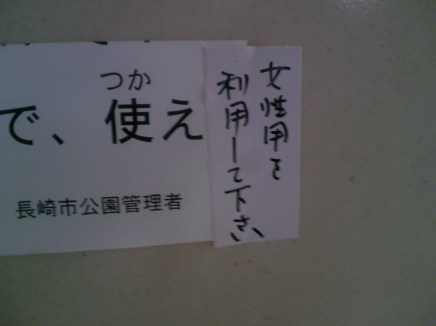 つか
で、使え
長崎市公園管理者
女性用を
利用して下さい